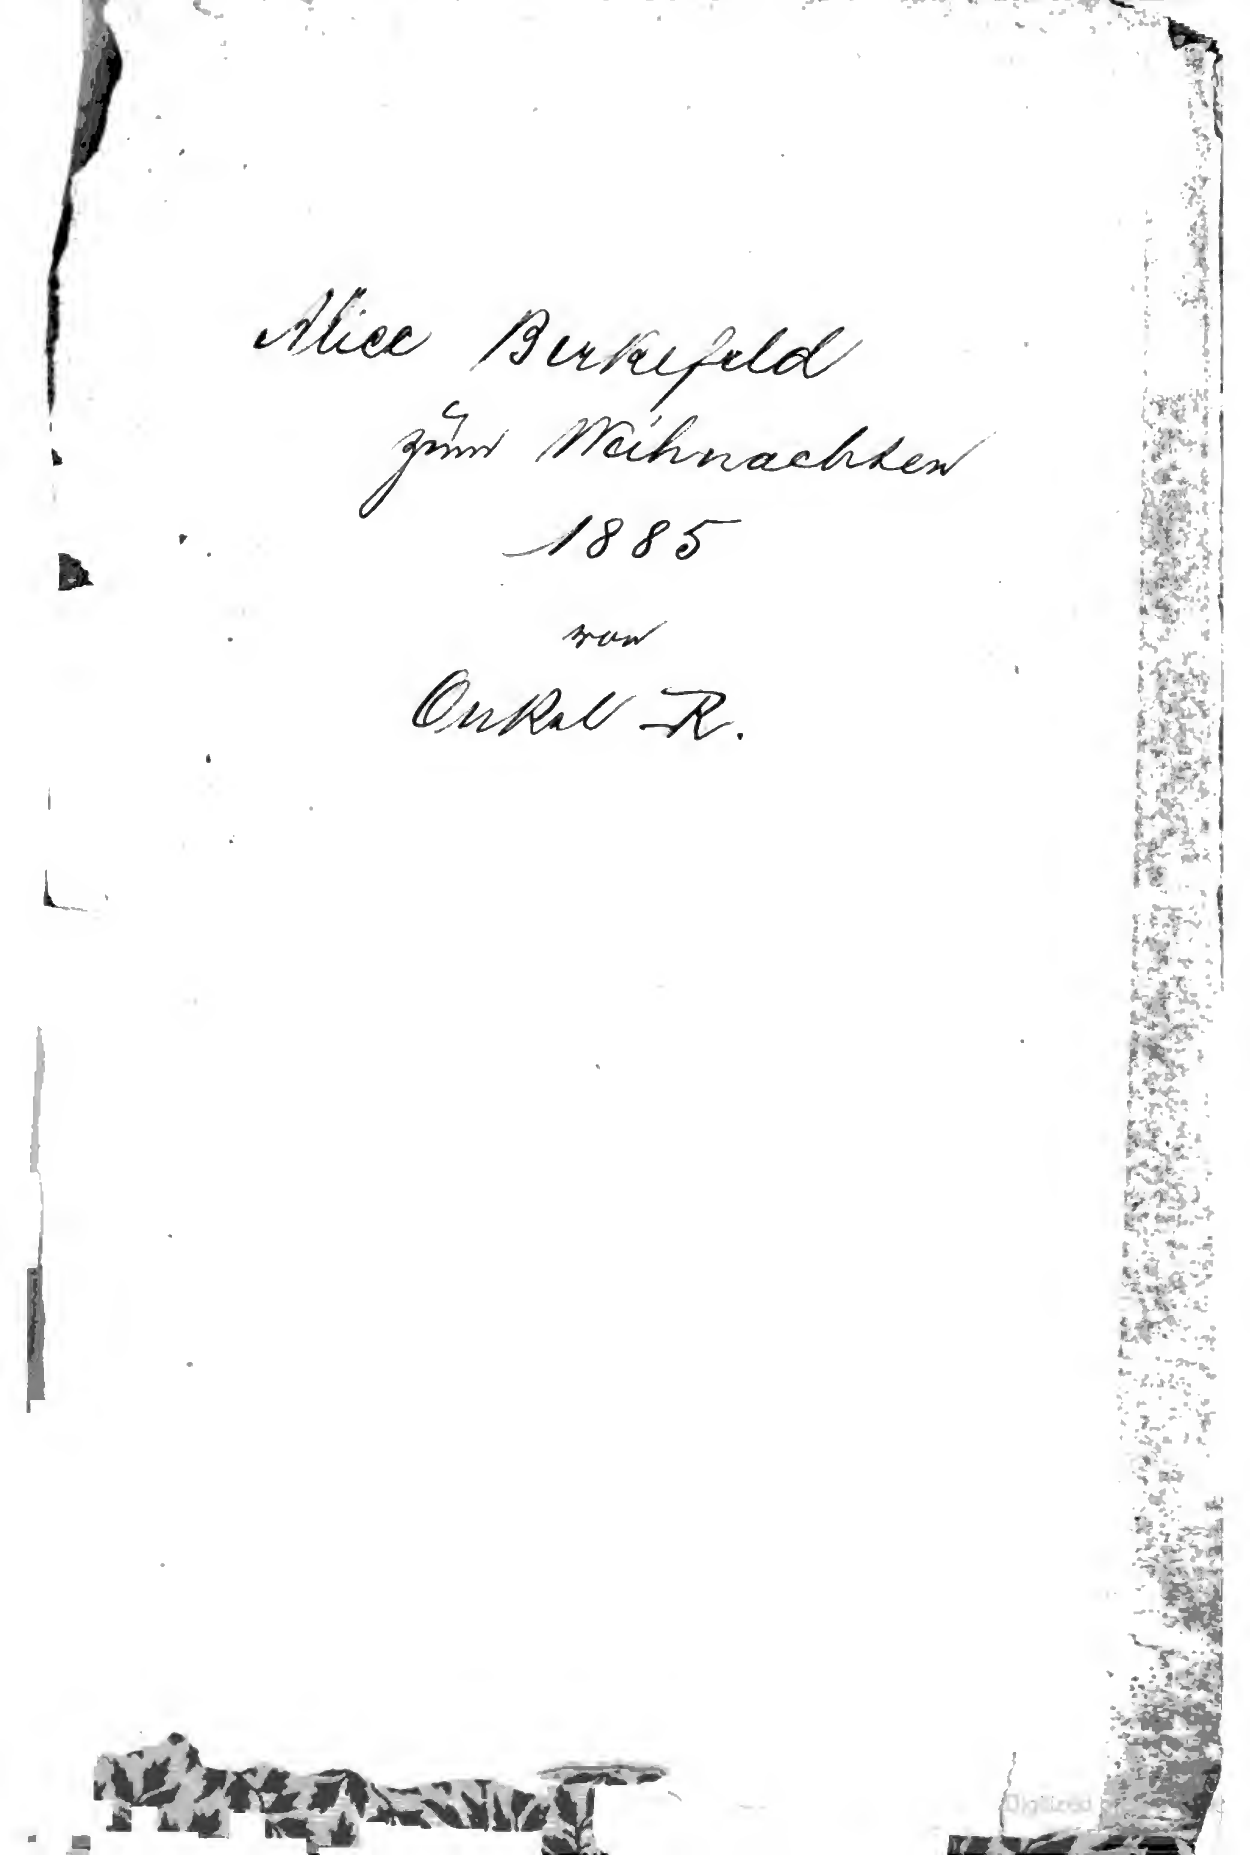 Alice Berkefeld
zum Weihnachten
1885
von
Onkel R.
Digitized